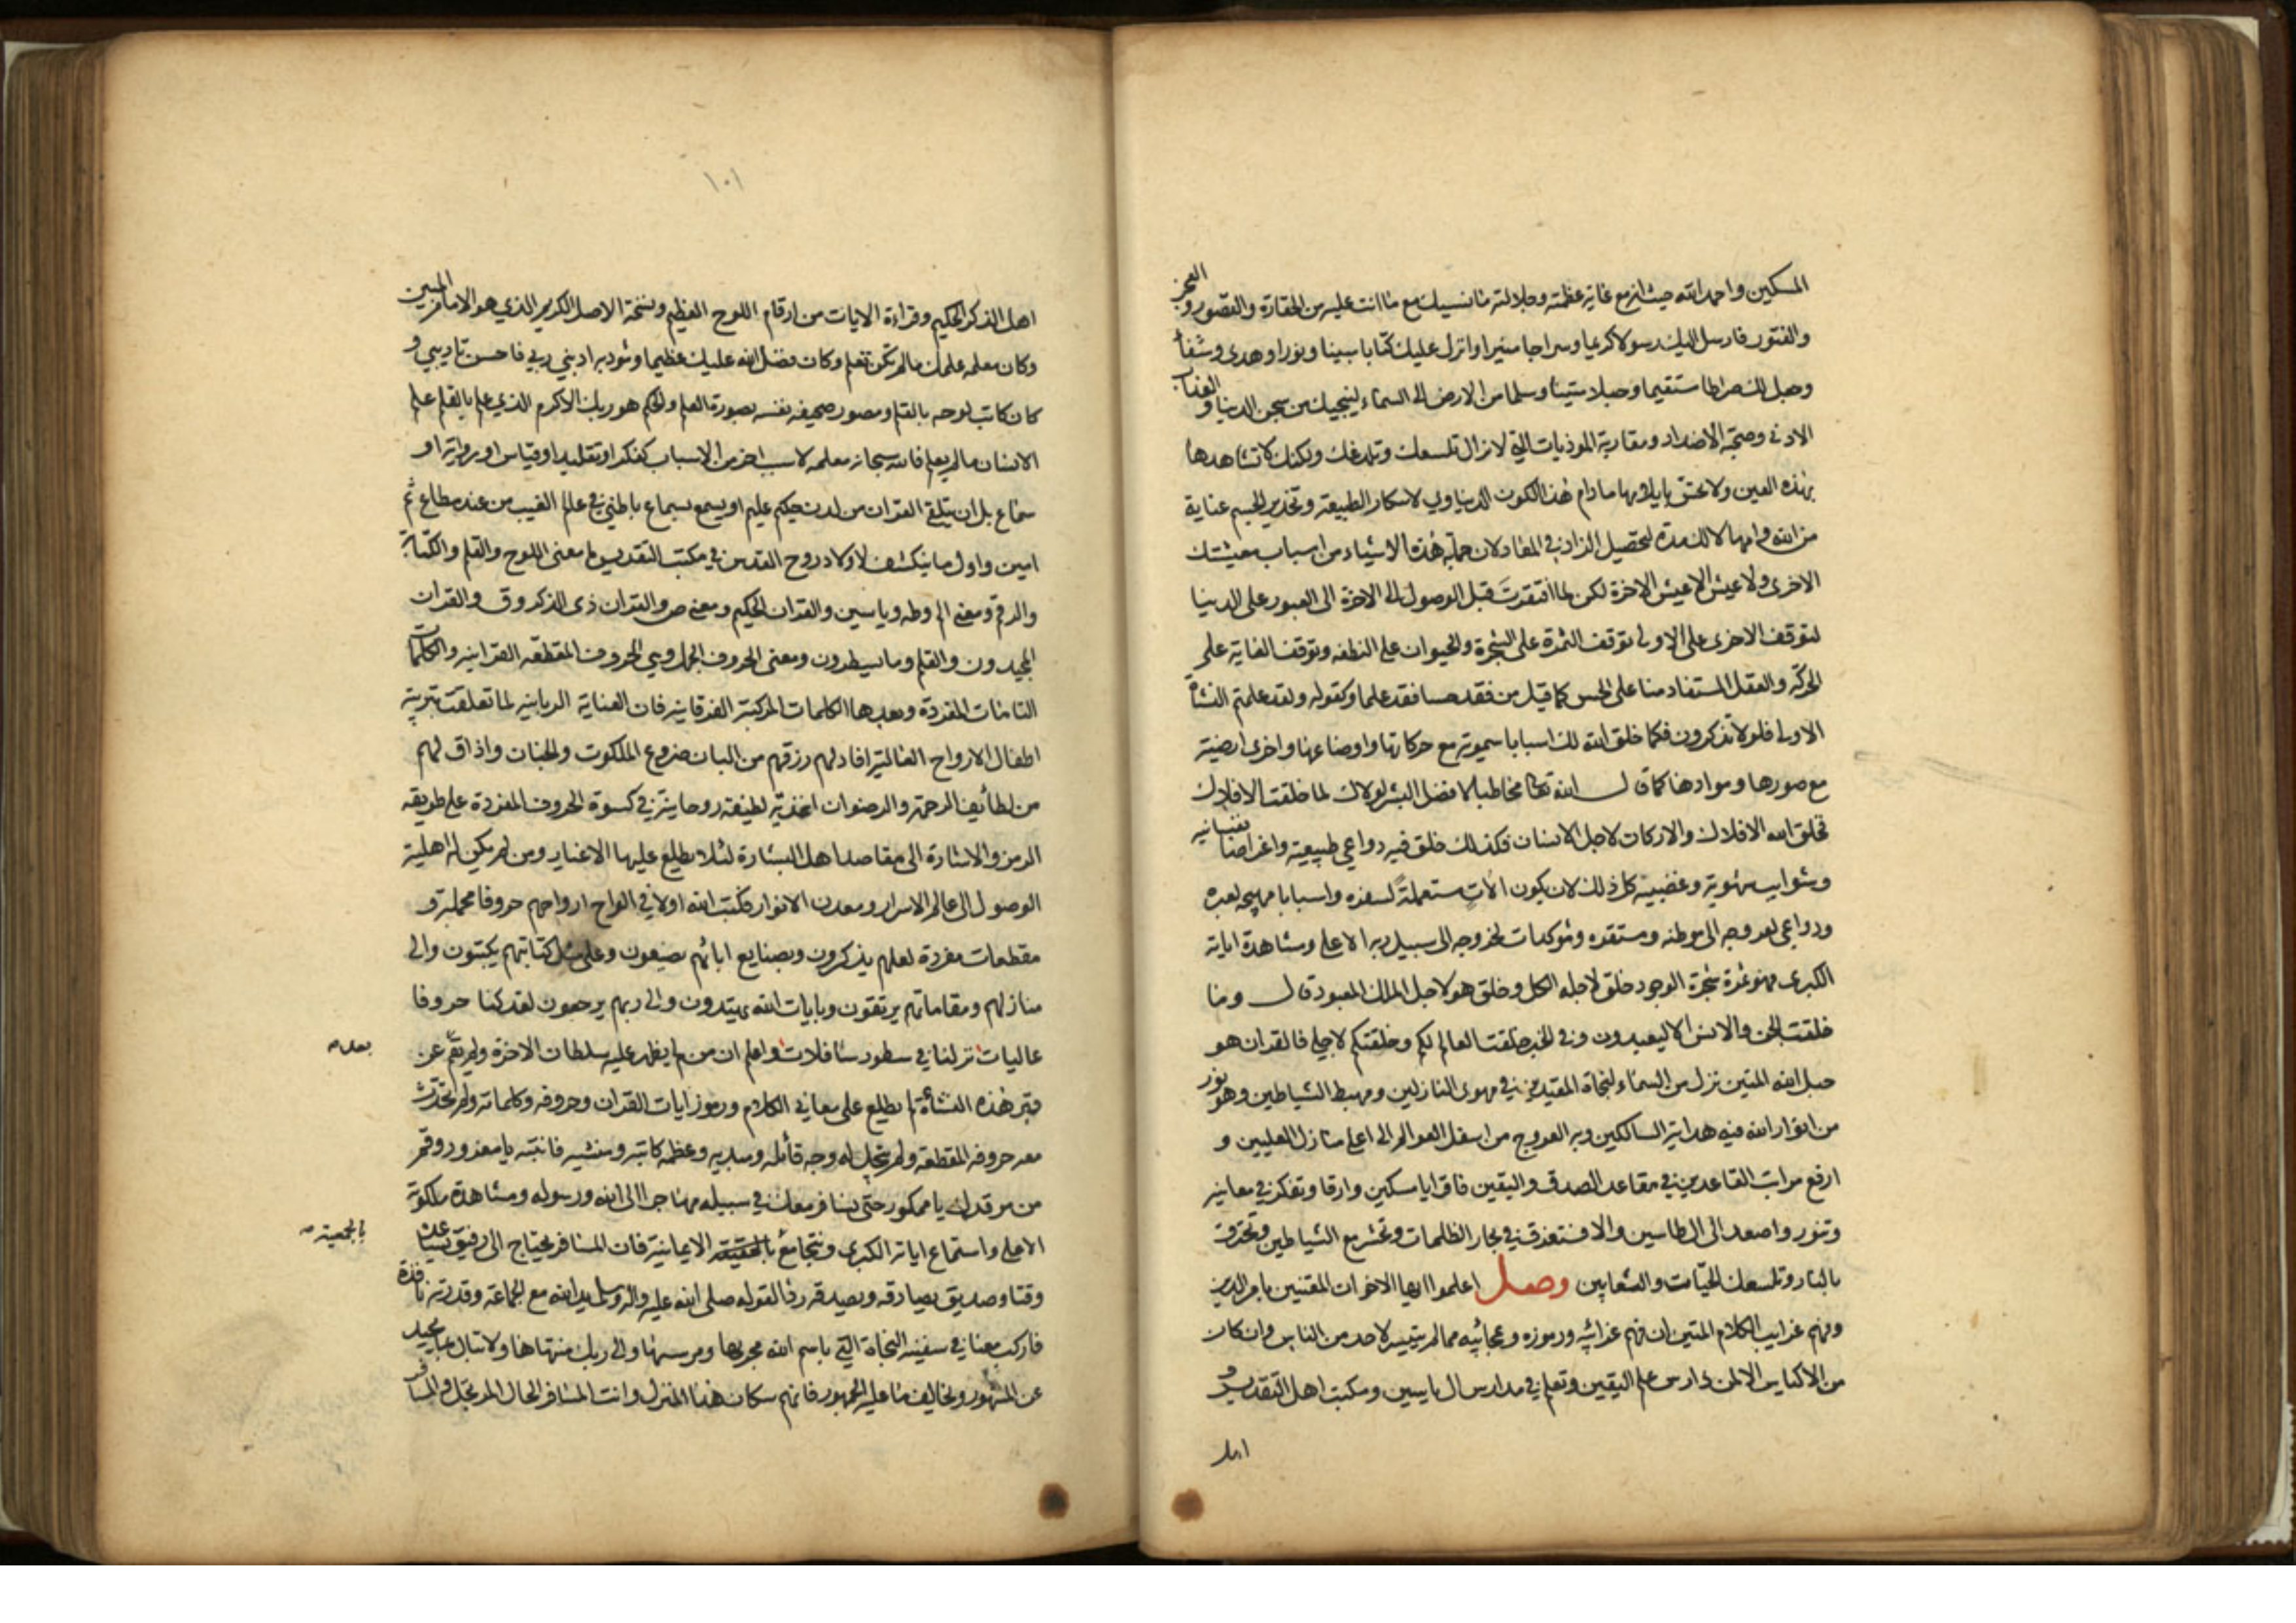 المسكين واحمد الله حيث انه مع غاية عظمته وجلالته ما نسيك مع ما انت عليه من الحقارة والقصور والعجز
والفتور فارسل اليك رسولا كريما وسراجا منيرا وانزل عليك كتابا مبينا ونورا وهدى وشفآء
وجعل لك صراطا مستقيما وحبلا متينا وسلما من الارض الى السماء لينجيك من سجن الدنيا والعذاب
الادنى وصحبة الاضداد ومقاربة الموذيات التي لا تزال تلسعك وتلدغك ولكنك لا تشاهدها
بهذه العين ولا تحس بايلامها ما دام هذا الكون الدنياوي لاسكار الطبيعة وتخدير الجسم عناية
من الله وامهالا لك مدة لتحصيل الزاد في المعاد لان جملة هذه الاشياء من اسباب معيشتك
الاخرى ولا عيش الا عيش الاخرة لكن لما افتقرت قبل الوصول الى الاخرة الى العبور على الدنيا
لتوقف الاخرى على الاولى توقف الثمرة على الشجرة والحيوان على النطفه وتوقف الغاية على
الحركة والعقل المستفاد منا على الحس كما قيل من فقد حسا فقد علما وكقوله ولقد علمتم النشأة
الاولى فلولا تذكرون فكما خلق الله لك اسبابا سموية مع حركاتها واوضاعها واخرى ارضية
مع صورها وموادها كما قال الله تعالى مخاطبا لافضل البشر لولاك لما خلقت الافلاك
فخلق الله الافلاك والاركان لاجل الانسان فكذلك خلق فيه دواعي طبيعية واغراضا نفسانيه
وشوايب شهوية وغضبية كل ذلك لان يكون الات مستعملة لسفره واسبابا مهيجه لعبره
ودواعي لعروجه الى موطنه ومستقره ومؤكدات لخروجه الى سبيل ربه الاعلى ومشاهدة اياته
الكبرى فهو ثمرة شجرة الوجود خلق لاجله الكل وخلق هو لاجل الملك المعبود قال وما
خلقت الجن والانس الا ليعبدون وفي الخبر خلقت العالم لكم وخلقتكم لاجلي فالقران هو
حبل الله المتين نزل من السماء لنجاة المقيدين في مهوى النازلين ومهبط الشياطين وهو نور
من انوار الله فيه هداية السالكين وبه العروج من اسفل العوالم الى اعلى منازل العليين و
ارفع مراتب القاعدين في مقاعد الصدق واليقين فاقرا يا مسكين وارقا وتفكر في معانيه
وتنور واصعد الى ال طاسين والا فستغرق في بحار الظلمات وتحشر مع الشياطين وتحترق
بالنار وتلسعك الحيات والثعابين وصل اعلموا ايها الاخوان المقتنين بامر الدين
وفهم غرايب الكلام المتين ان فهم غرائبه ورموزه وعجائبه مما لم يتيسر لاحد من الناس وان كان
من الاكياس الا لمن دارس علم اليقين وتعلم في مدارس ال ياسين ومكتب اهل التقديس و
اهل
١٠١
اهل الذكر الحكيم وقراءة الايات من ارقام اللوح العظيم ونسخة الاصل الكريم الذي هو الامام المبين
وكان معلمه علمك ما لم تكن تعلم وكان فضل الله عليك عظيما ومؤدبه ادبني ربي فاحسن تاديبي و
كان كاتب لوحه بالقلم ومصور صحيفه نفسه بصورة العلم والحكم هو ربك الاكرم الذي علم بالقلم علم
الانسان ما لم يعلم فانه سبحانه معلمه لا سبب اخر من الاسباب كفكر او تقليد او قياس او رواية او
سماع بل ان يتلقى القران من لدن حكيم عليم او يسمع بسماع باطني في عالم الغيب من عند مطاع ثم
امين واول ما ينكشف لاولاد روح القدس في مكتب التقديس ما معنى اللوح والقلم والكتابة
والرقم ومعنى الم وطه وياسين والقران الحكيم ومعنى ص والقران ذى الذكر وق والقران
المجيد ون والقلم وما يسطرون ومعنى الحروف الجمل وهي الحروف المقطعه القرانيه والكلمات
التامات المفردة وبعدها الكلمات المركبة الفرقانيه فان العناية الربانيه لما تعلقت بتربية
اطفال الارواح العالية افاد لهم رزقهم من البان ضروع الملكوت والجنان واذاق لهم
من لطائف الرحمة والرضوان اغذية لطيفة روحانية في كسوة الحروف المفردة على طريقه
الرمز والاشارة الى مقاصد اهل البشارة لئلا يطلع عليها الاغيار ومن لم يكن له اهلية
الوصول الى عالم الاسرار ومعدن الانوار فكتب الله اولا في الواح ارواحهم حروفا مجملة و
مقطعات مفردة لعلهم يذكرون وبصنايع ابائهم يصنعون وعلى مثل كتابتهم يكتبون والى
منازلهم ومقاماتهم يرتقون وبايات الله يهتدون والى ربهم يرجعون لقد كنا حروفا
عاليات نزلنا في سطور سافلات واعلم ان من لم يظهر عليه سلطان الاخرة ولم يقم عن
بعد
قبر هذه النشأة لم يطلع على معاني الكلام ورموز ايات القران وحروفه وكلماته ولم يتحدث
معه حروفه المقطعه ولم يتجل له وجه قائله ومبديه وعظمه كاتبه ومنشيه فانتبه يا مغرور وقم
من مرقدك يا ممكور حتى نسافر معك في سبيله مهاجرا الى الله ورسوله ومشاهدة ملكوته
الاعلى واستماع اياته الكبرى ونتجامع بالحقيقه الايمانية فان المسافر يحتاج الى رفيق يساعده
بالجمعية
وقتا وصديق يصادقه ويصدقه رفا لقوله صلى الله عليه واله وسلم يد الله مع الجماعة وقدرته نافذة
فاركب معنا في سفينه النجاة التي باسم الله مجريها ومرسيها والى ربك منتهاها ولا تبال
عن المشهور وتخالف ما عليه الجمهور فانهم سكان هذا المنزل وانت المسافر الحال المرتحل